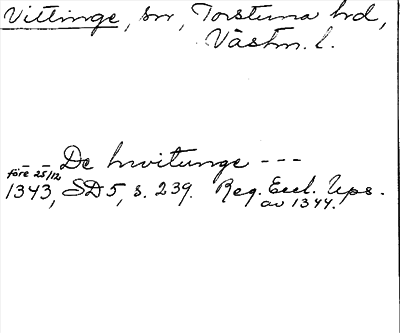 Vittinge, sn, Torstuna hd,
Västm. l.
– – De hvitunge - - -
före 25/12
1343, SD 5, s. 239. Reg. Eccl. Ups.
av 1344.